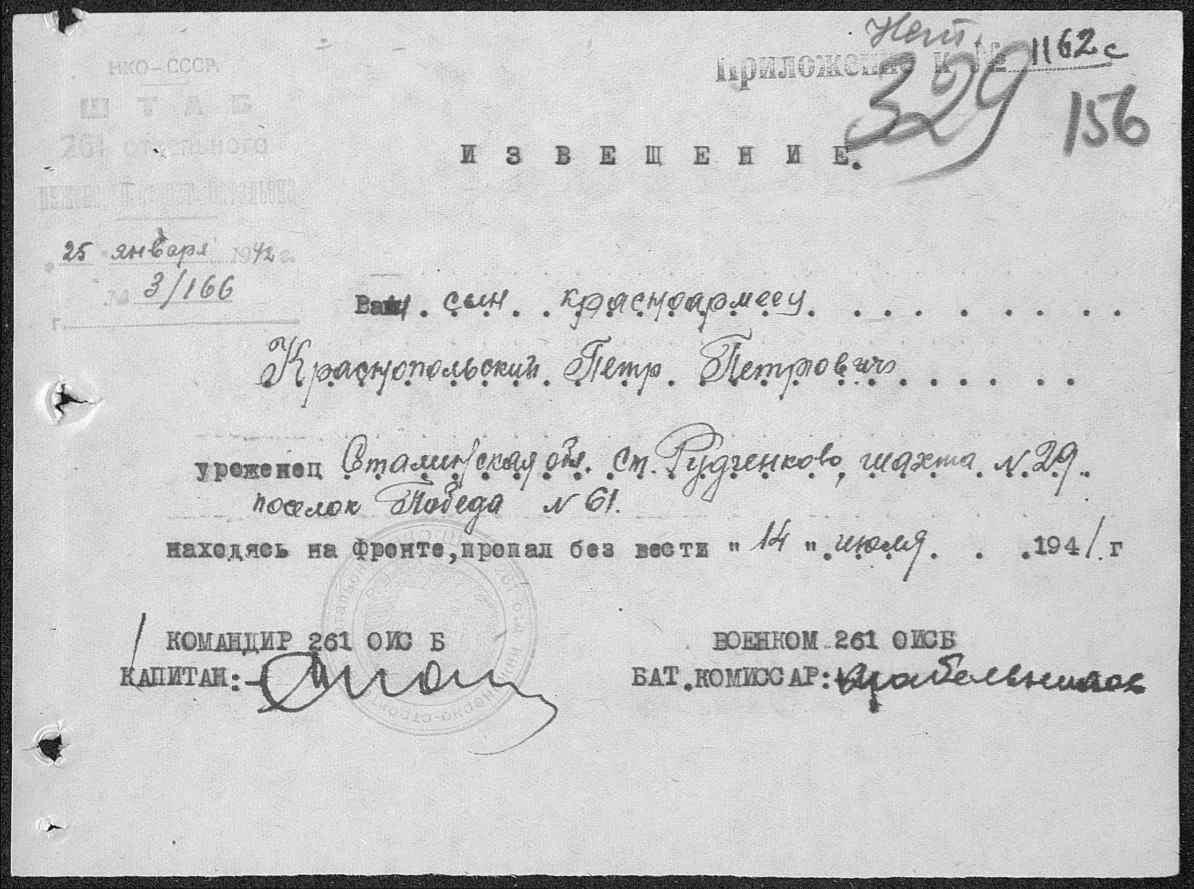 Нет.
Приложение к № 1162с
329
156
НКО-СССР
ШТАБ
261 отдельного
25 января 1942 г.
№ 3/166
г.
ИЗВЕЩЕНИЕ.
Ваш. сын красноармеец
Краснопольский Петр Петрович
уроженец Сталинская обл. ст. Рудченково, шахта N 29.
поселок Победа N 61.
находясь на фронте, пропал без вести "14" июля 1941 г
КОМАНДИР 261 ОИС Б
ВОЕНКОМ 261 ОИСБ
КАПИТАН:
БАТ.КОМИССАР: